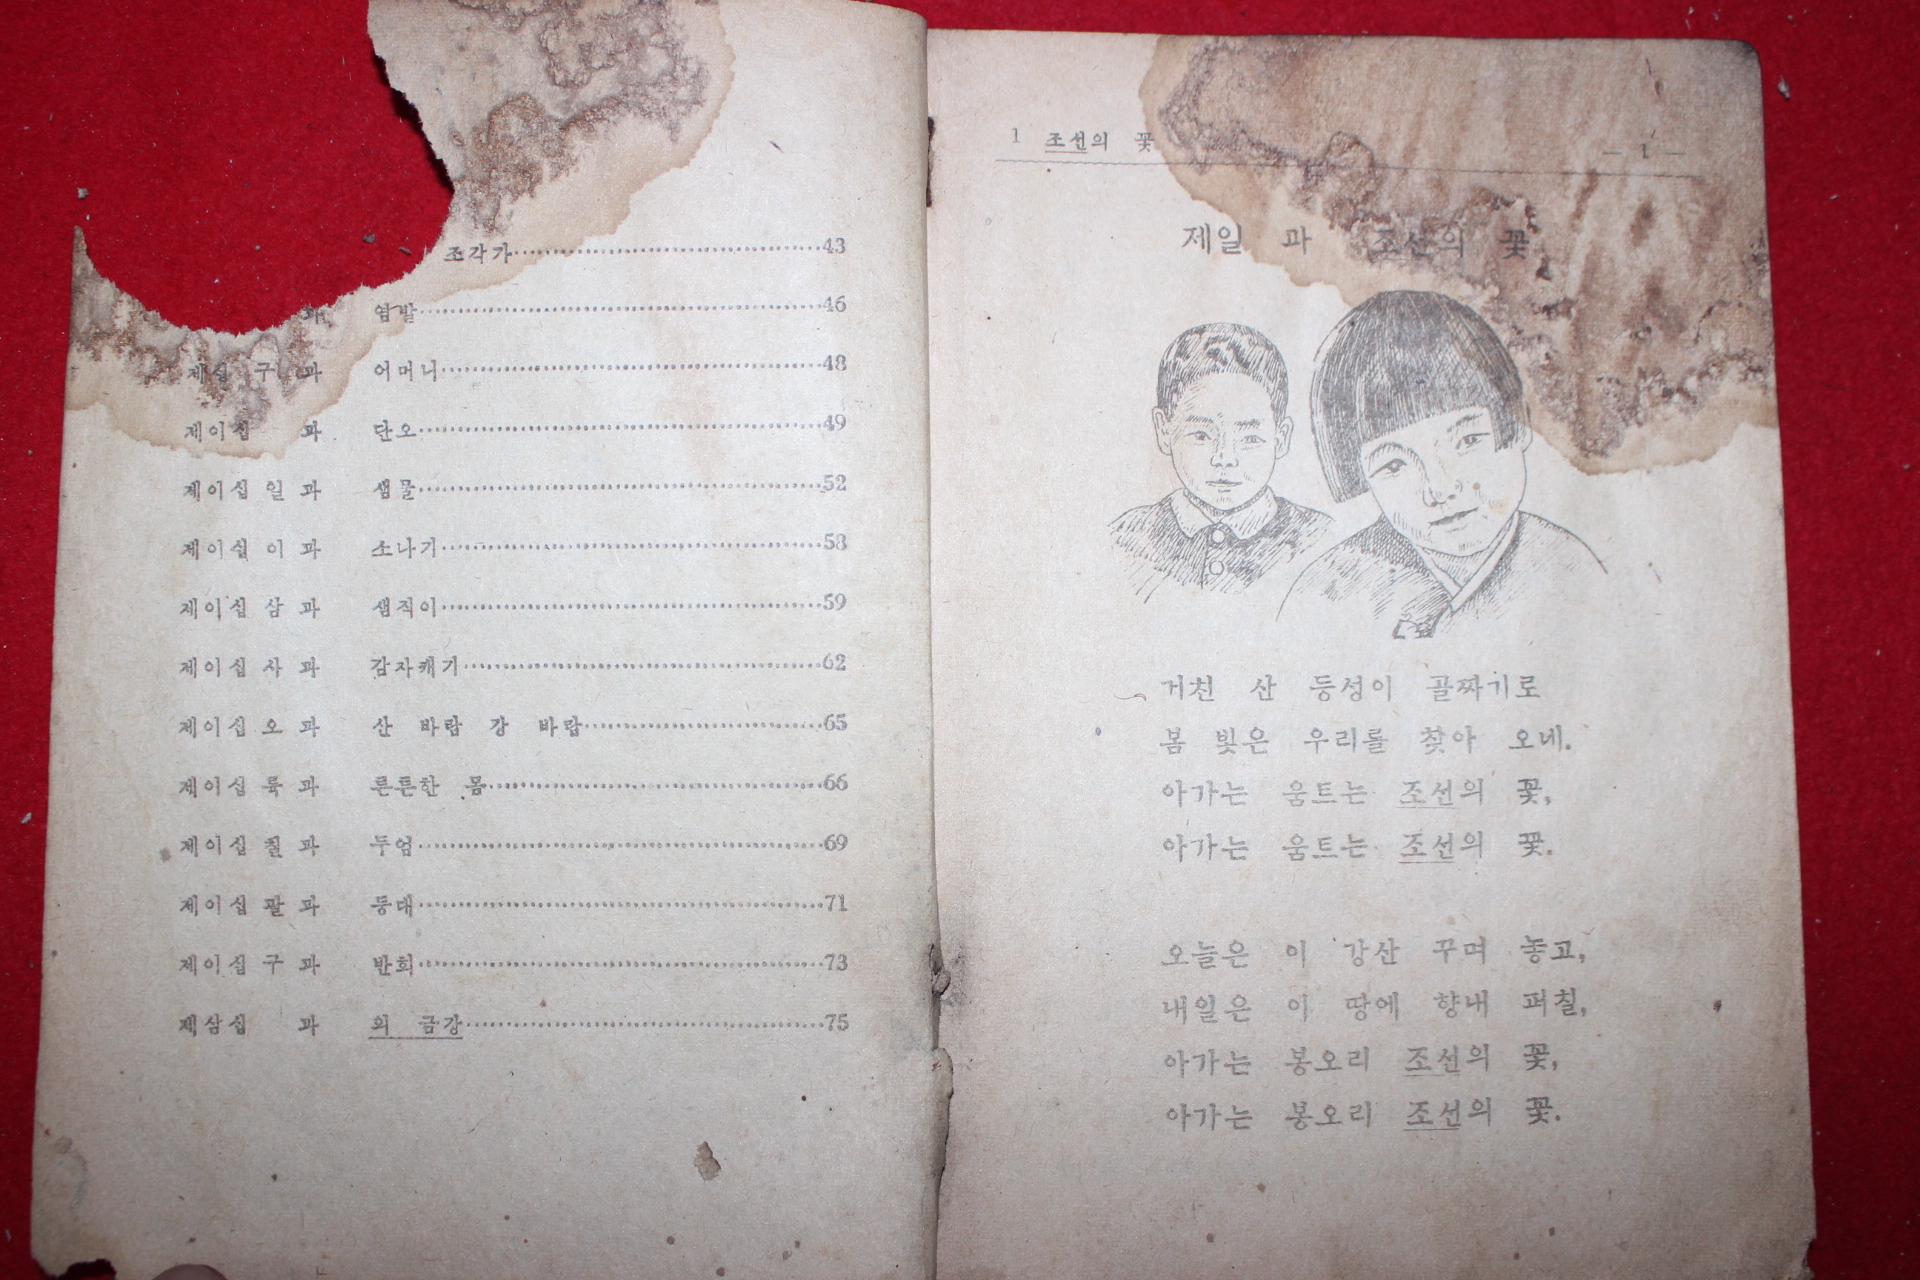 조각가 43
과 염발 46
제십구과 어머니 48
제이십과 단오 49
제이십일과 샘물 52
제이십이과 소나기 58
제이십삼과 샘직이 59
제이십사과 감자캐기 62
제이십오과 산 바람 강 바람 65
제이십륙과 튼튼한 몸 66
제이십칠과 두엄 69
제이십팔과 등대 71
제이십구과 반회 73
제삼십과 외 금강 75
1 조선의 꽃 — 1 —
제일 과 조선의 꽃
거친 산 등성이 골짜기로
봄 빛은 우리를 찾아 오네.
아가는 움트는 조선의 꽃,
아가는 움트는 조선의 꽃.
오늘은 이 강산 꾸며 놓고,
내일은 이 땅에 향내 퍼칠,
아가는 봉오리 조선의 꽃,
아가는 봉오리 조선의 꽃.